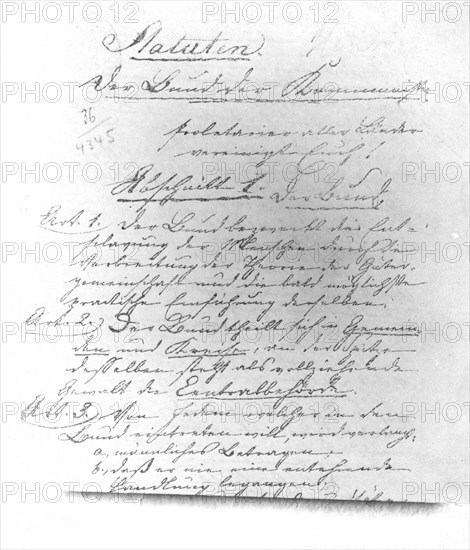 Statuten.
Der Bund der Kommunisten
36
4345
Proletarier aller Länder
vereinigt Euch!
Abschnitt 1. Der Bund.
Art. 1. Der Bund bezweckt die Ent-
sclavung der Menschen durch die
Verbreitung der Theorie der Güter-
gemeinschaft und die bald möglichste
practische Einführung derselben.
Art. 2. Der Bund theilt sich in Gemein-
den und Kreise, an der Spitze
desselben steht als vollziehende
Gewalt die Centralbehörde.
Art. 3. Von jedem, welcher in den
Bund eintreten will, wird verlangt:
a, männliches Betragen;
b, daß er nie eine entehrende
Handlung begangen;
PHOTO12